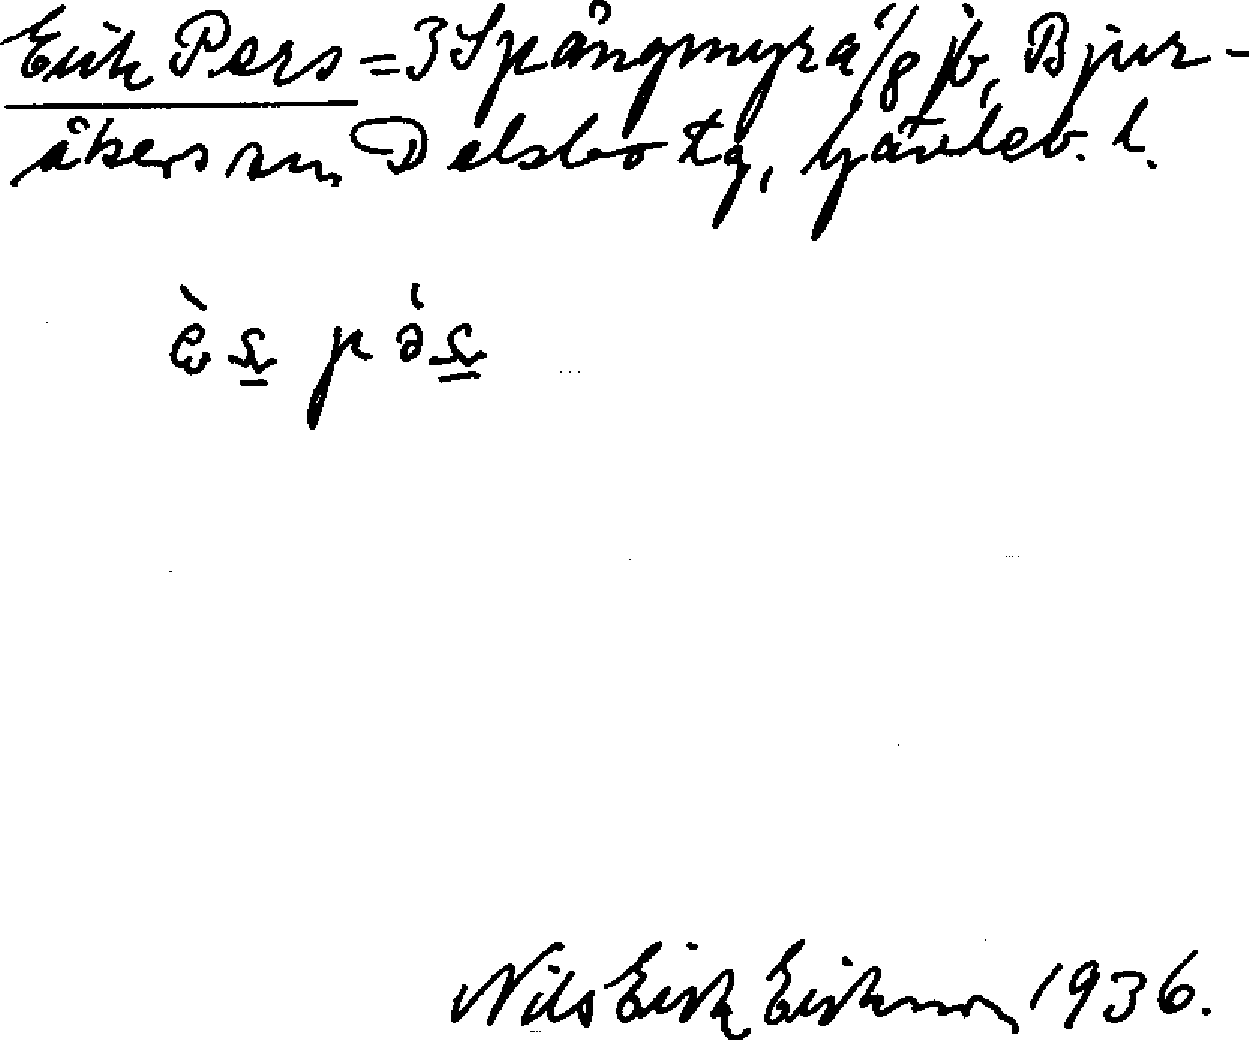 Erik Pers = 3 Spångmyra 1/8 jb, Bjur-
åkers sn Delsbo tg, Gävleb. l.
Nils Erik Eriksson 1936.